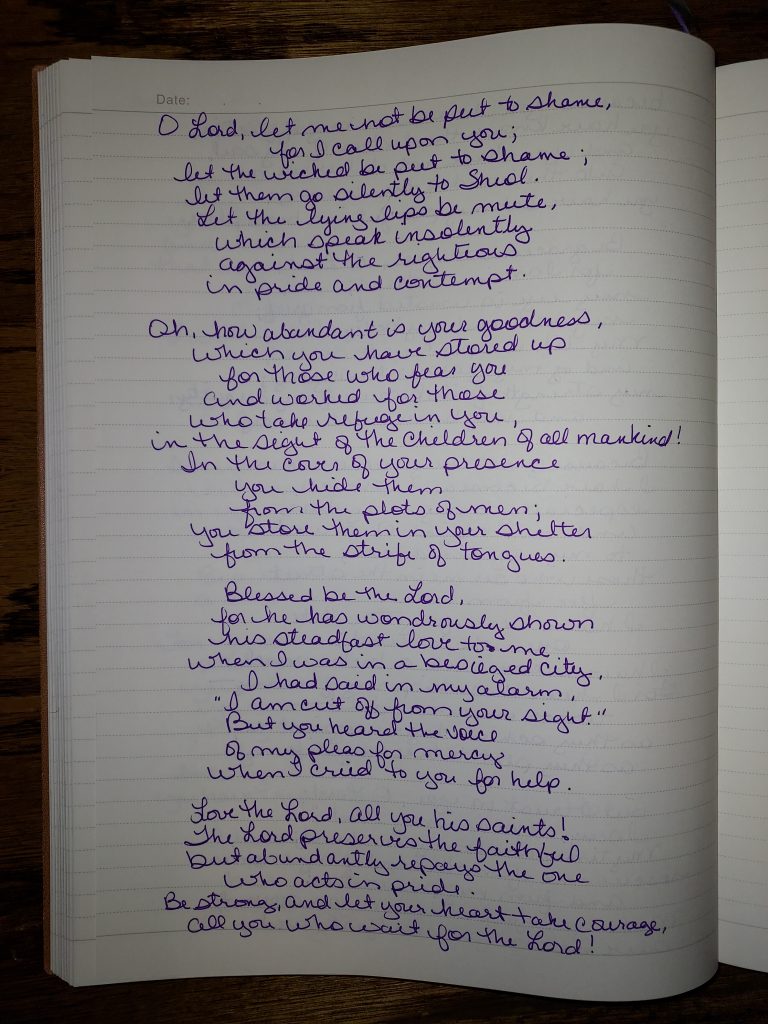 Date:
O Lord, let me not be put to shame,
for I call upon you;
let the wicked be put to shame;
let them go silently to Sheol.
Let the lying lips be mute,
which speak insolently
against the righteous
in pride and contempt.
Oh, how abundant is your goodness,
which you have stored up
for those who fear you
and worked for those
who take refuge in you,
in the sight of the children of all mankind!
In the cover of your presence
you hide them
from the plots of men;
you store them in your shelter
from the strife of tongues.
Blessed be the Lord,
for he has wondrously shown
his steadfast love to me
when I was in a besieged city.
I had said in my alarm,
"I am cut off from your sight."
But you heard the voice
of my pleas for mercy
when I cried to you for help.
Love the Lord, all you his saints!
The Lord preserves the faithful
but abundantly repays the one
who acts in pride.
Be strong, and let your heart take courage,
all you who wait for the Lord!